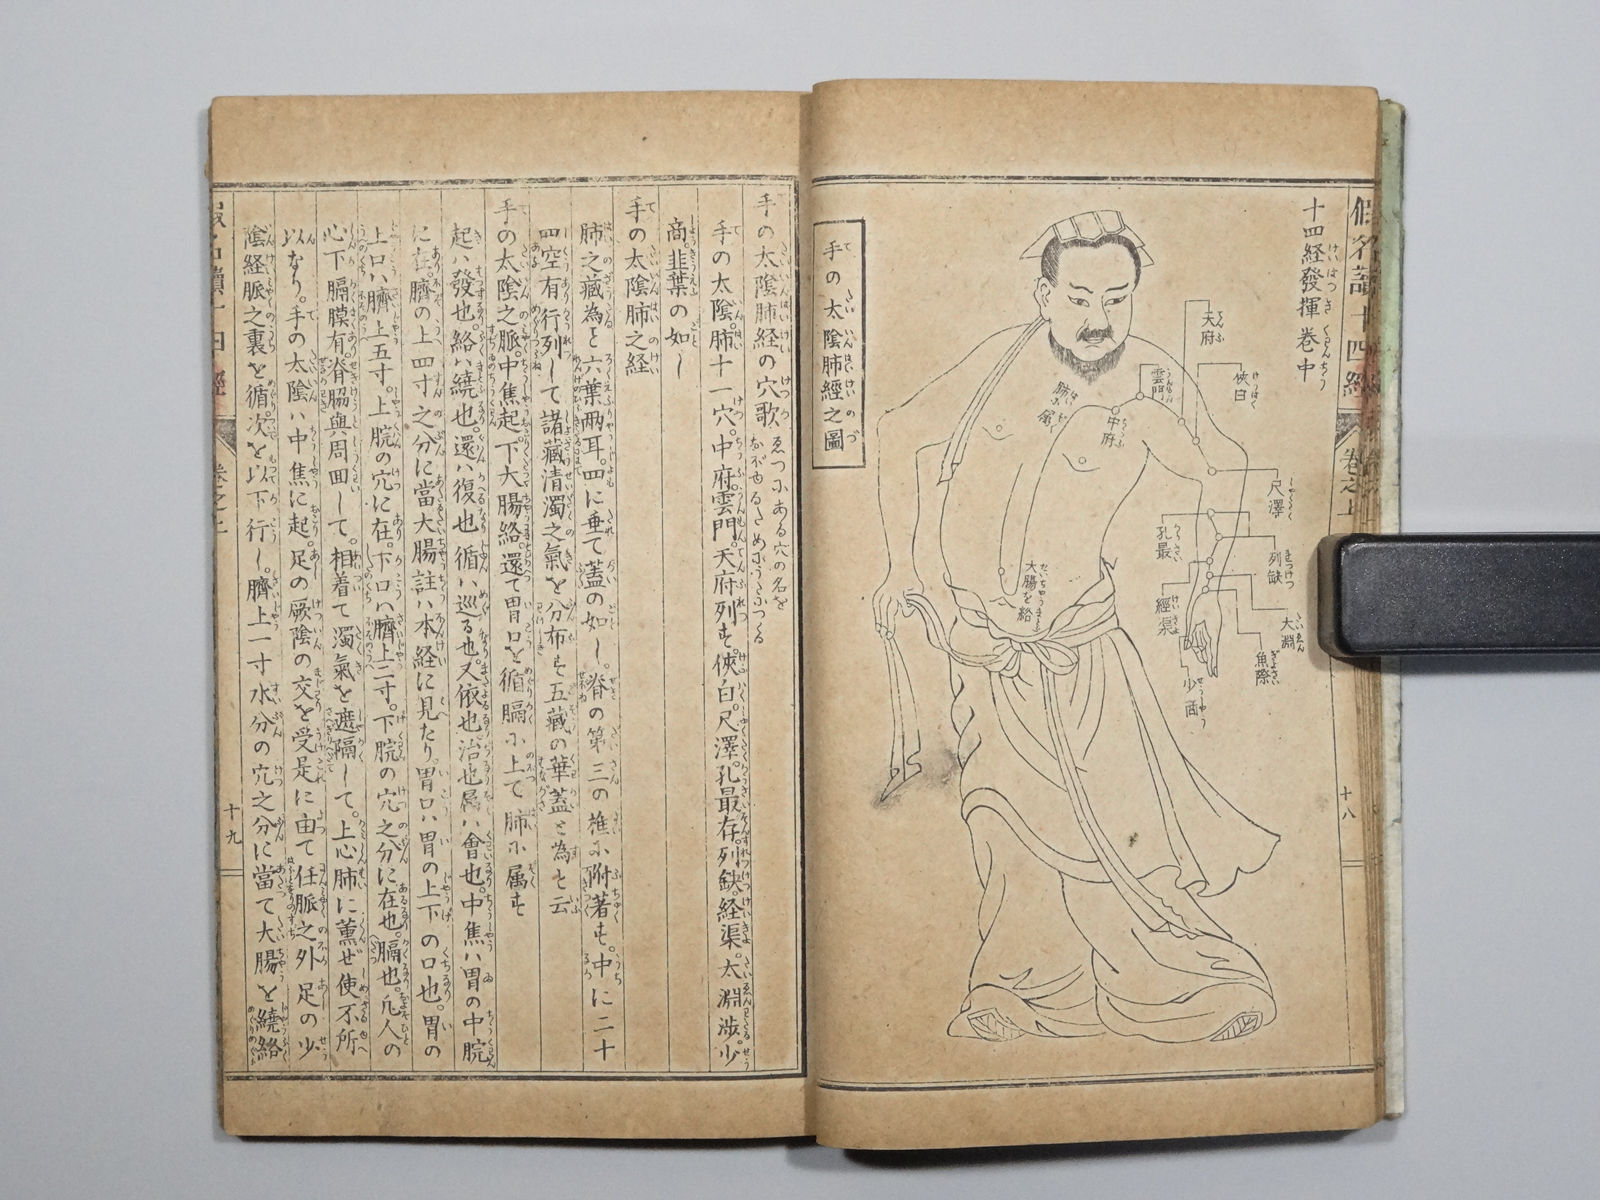 假名讀十四經
巻之上
十八
十四経發揮 巻中
天府
俠白
雲門
中府
肺に属
尺澤
孔最
列缺
經渠
大淵
魚際
少商
大腸を絡
手の太陰肺經之圖
手の太陰肺経の穴歌
ゑつにある穴の名を
おぼゆるためにうたにつくる
手の太陰。肺十一穴。中府。雲門。天府列す。俠白。尺澤。孔最存。列缺。経渠。太淵渉。少
商。韭葉の如し
手の太陰肺之経
肺之藏為と六葉兩耳。四に垂て蓋の如し。脊の第三の椎に附著す。中に二十
四空有行列して諸藏清濁之氣を分布す五藏の華蓋と為と云
手の太陰之脈。中焦起。下大腸絡。還て胃口を循膈に上て肺に属す
起ハ發也。絡ハ繞也。還ハ復也 循ハ巡る也。又依也。治也属ハ會也。中焦ハ胃の中脘
に在。臍の上四寸之分に當大腸註ハ本経に見たり。胃口ハ胃の上下の口也。胃の
上口ハ臍上五寸。上脘の穴に在。下口ハ臍上二寸。下脘の穴之分に在也。膈也。凡人の
心下膈膜有。脊脇與周囬して。相着て濁氣を遮隔して。上心肺に薫ぜ使不所
以なり。手の太陰ハ中焦に起。足の厥陰の交を受是に由て任脈之外足の少
陰経脈之裏を循次を以下行し。臍上一寸水分の穴之分に當て大腸を繞絡
十九
巻之上